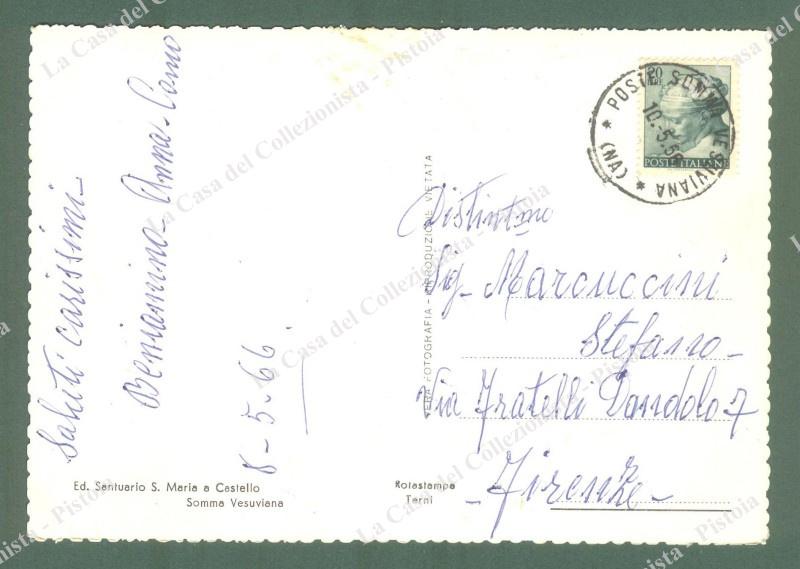 Saluti carissimi -
Beniamino - Anna - Como
8 - 5 - 66.
Ed. Santuario S. Maria a Castello
Somma Vesuviana
VERA FOTOGRAFIA - RIPRODUZIONE VIETATA
Rotastampa
Terni
20
POSTE ITALIANE
* POSTE SOMMA VESUVIANA * (NA)
10.5.6
Distintmo
Sig - Marcuccini
Stefano -
Via Fratelli Dandolo 7
- Firenze -
La Casa del Collezionista - Pistoia